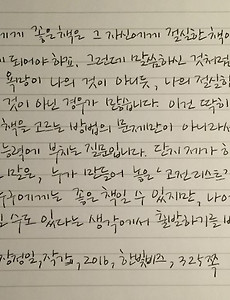 에게 좋은책은 그 자신에게 절실한 책이
이 되어야 하고, 그런데 말씀하신 것처럼
욕망이 나의 것이 아니듯, 나의 절실함
것이 아닌 경우가 많습니다. 이건 딱히
책을 고르는 방법의 문제만이 아니라서
능력에 부치는 질문입니다. 단지 제가 하
말은, 누가 만들어 놓은 '고전리스트
누구에게는 좋은 책일 수 있지만, 나에
일 수도 있다는 생각에서 출발하기를 바
장정일, 작가, 2016, 한빛비즈, 325쪽